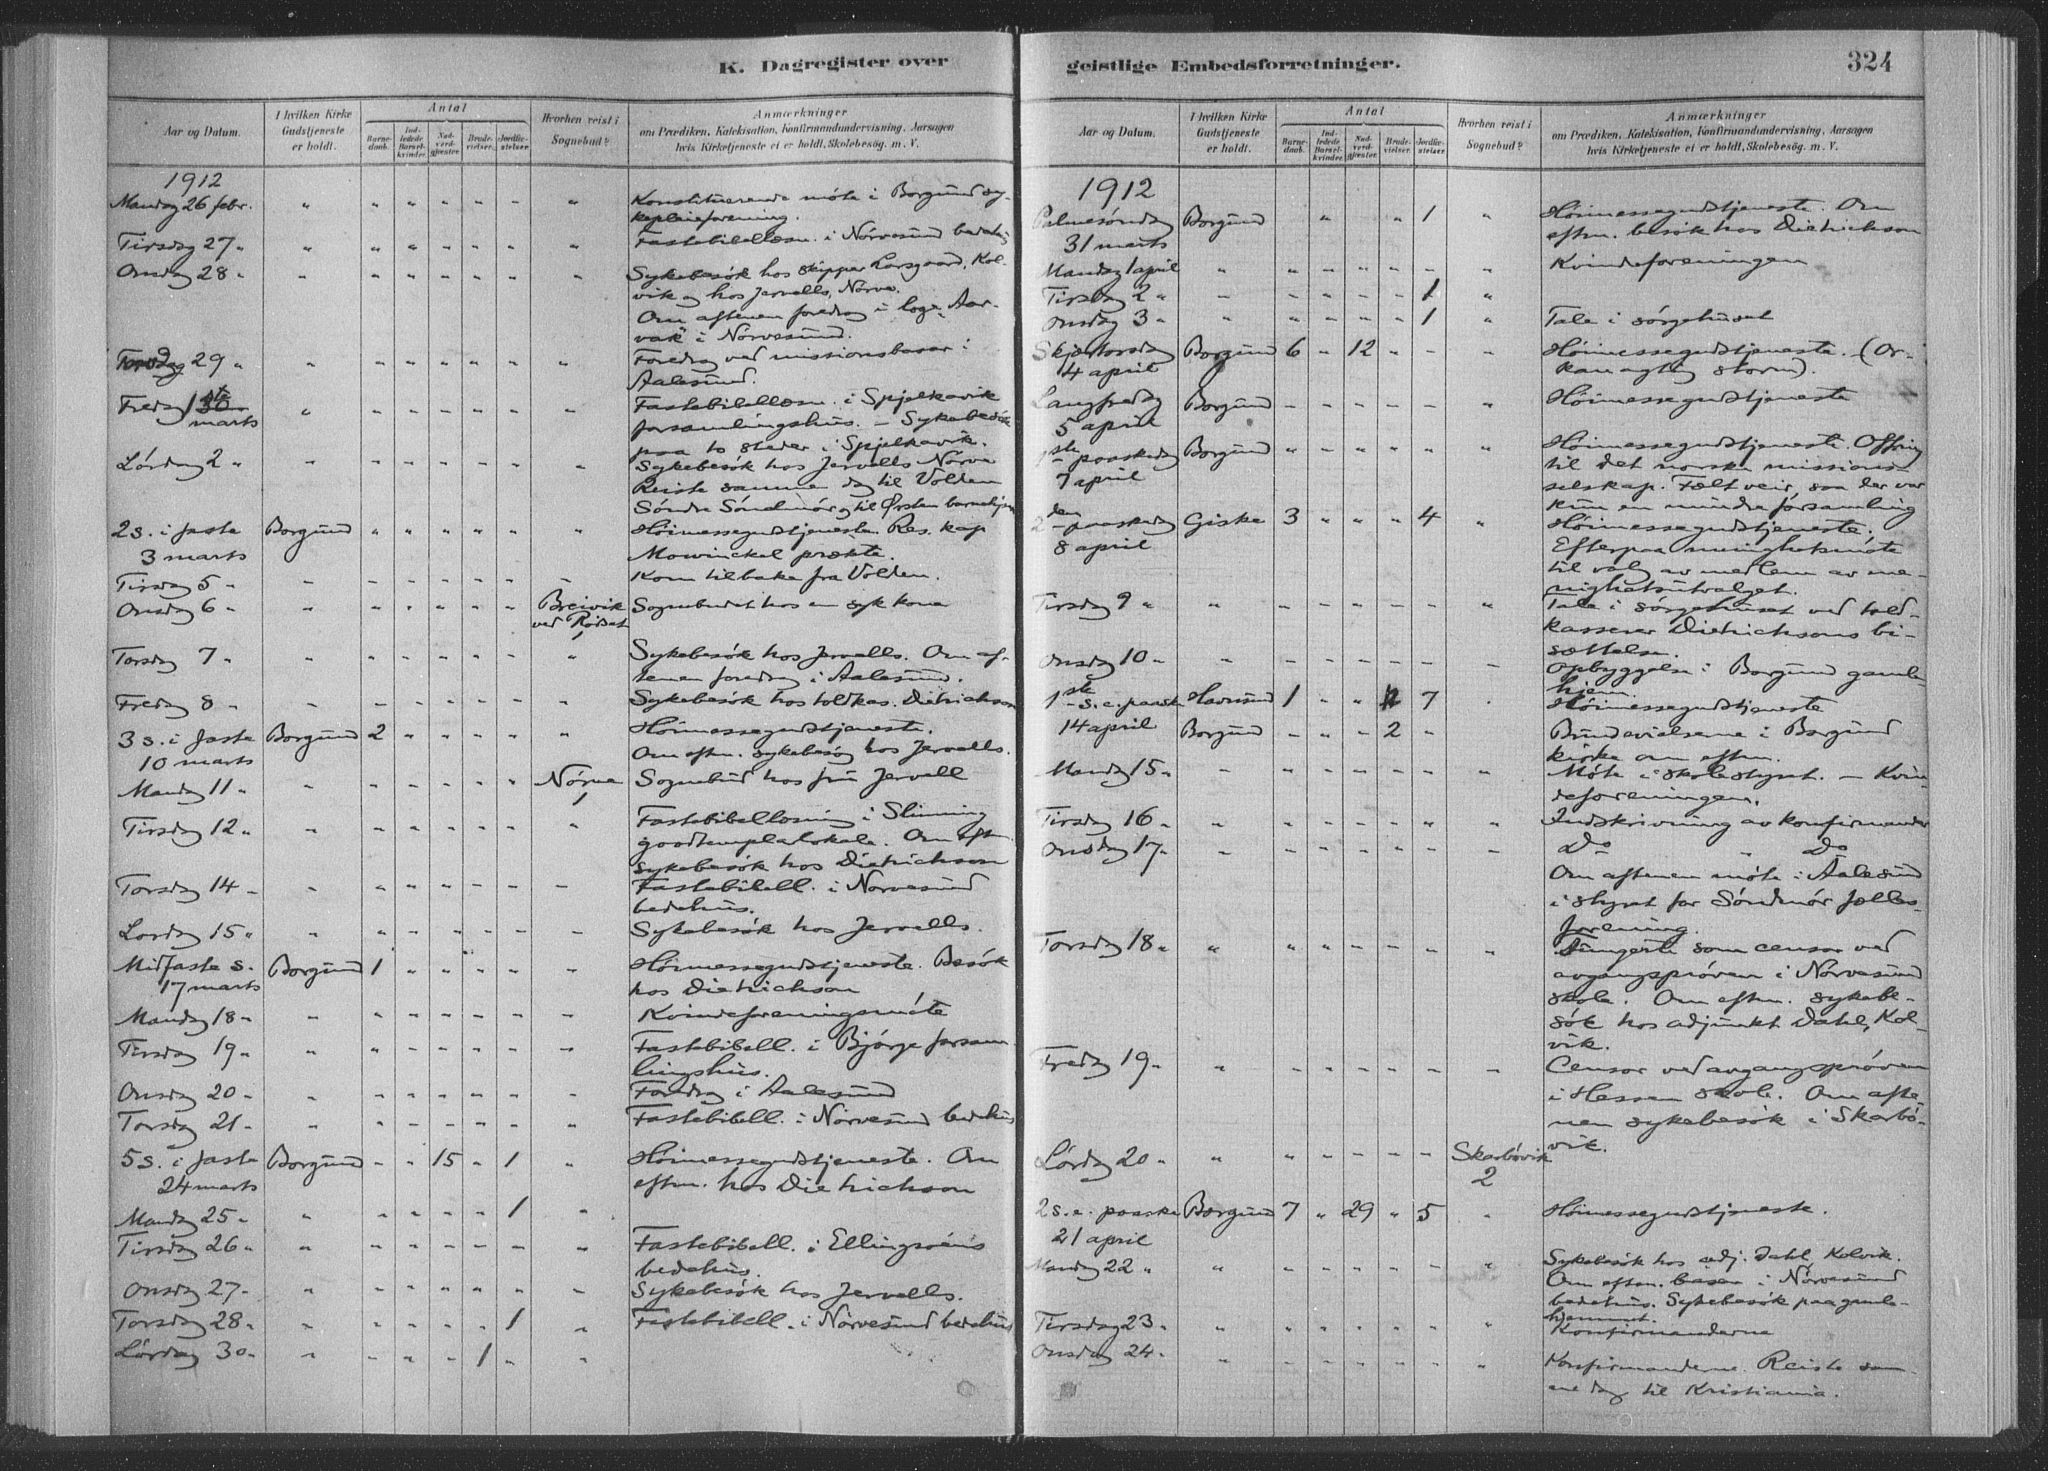 K. Dagregister over
Aar og Datum.
I hvilken Kirke Gudstjeneste er holdt.
Antal
Barnedaab.
Indledede Barselkvinder.
Nadverdgjester
Brudevielser.
Jordfæstelser
Hvorhen reist i Sognebud?
Anmærkninger
om Prædiken, Katekisation, Konfirmandundervisning, Aarsagen
hvis Kirketjeneste ei er holdt, Skolebesög. m. V.
1912
Mandag 26 febr. " " " " " " " Konstituerende möte i Borgund sy-
kepleieforening.
Tirsdag 27 " " " " " " " " Fastebibellæsn. i Nörvesund bedehus
Onsdag 28 " " " " " " " " Sykebesök hos skipper Lorgaard, Kol-
vik og hos Jervells, Nörve.
Om aftenen foredrag i loge "Aar-
vak" i Nörvesund.
Torsdag 29 " " " " " " " " Foredrag ved missionsbasar i
Aalesund.
Fredag 1ste marts " " " " " " " Fastebibellæsn. i Spjelkavik
forsamlingshus. – Sykebesök
paa to steder i Spjelkavik.
Lördag 2 " " " " " " " " Sykebesök hos Jervells Nörve
Reiste samme dag til Volden
Söndre Söndmör og til Örsten barnehjem
2 s. i faste Borgund " " " " " " Höimessegudstjeneste. Res. kap
3 marts Mowinckel prækte.
Tirsdag 5 " " " " " " " " Kom tilbake fra Volden.
Onsdag 6 " " " " " " " Breivik Sognebudet hos en syk kone
ved Rödset
1
Torsdag 7 " " " " " " " " Sykebesök hos Jervells. Om af-
tenen foredrag i Aalesund.
Fredag 8 " " " " " " " " Sykebesök hos toldkas. Dietrichson
3 s. i faste Borgund 2 " " " " " Höimessegudstjeneste.
10 marts Om eftm. sykebesög hos Jervells.
Mandag 11 " " " " " " " Nörve Sognebud hos fru Jervell
1
Tirsdag 12 " " " " " " " " Fastebibellæsning i Slinning
goodtemplarlokale. Om eftm.
sykebesök hos Dietrichson
Torsdag 14 " " " " " " " " Fastebibell. i Nörvesund
bedehus.
Lordag 15 " " " " " " " " Sykebesök hos Jervells.
Midfaste s. Borgund 1 " " " " " Höimessegudstjeneste. Besök
17 marts hos Dietrichson
Mandag 18 " " " " " " " " Kvindeforeningsmöte
Tirsdag 19 " " " " " " " " Fastebibell. i Bjørge forsam-
lingshus.
Onsdag 20 " " " " " " " " Foredrag i Aalesund
Torsdag 21 " " " " " " " " Fastebibell. i Nörvesund bedehus
5 s. i faste Borgund " " 15 " 1 " Höimessegudstjeneste. Om
24 marts eftm. hos Dietrichson
Mandag 25 " " " " " " 1 "
Tirsdag 26 " " " " " " " " Fastebibell. i Ellingsöens
bedehus.
Onsdag 27 " " " " " " " " Sykebesök hos Jervells.
Torsdag 28 " " " " " " 1 " Fastebibell. i Nörvesund bedehus
Lördag 30 " " " " " 1 " "
geistlige Embedsforretninger.
324
Aar og Datum.
I hvilken Kirke Gudstjeneste er holdt.
Antal
Barnedaab.
Indledede Barselkvinder.
Nadverdgjester
Brudevielser.
Jordfæstelser
Hvorhen reist i Sognebud?
Anmærkninger
om Prædiken, Katekisation, Konfirmandundervisning, Aarsagen
hvis Kirketjeneste ei er holdt, Skolebesög. m. V.
1912
Palmesöndag Borgund " " 1 " Höimessegudstjeneste. Om
31 marts eftm. besök hos Dietrichson
Mandag 1 april " " " " " " " Kvindeforeningen
Tirsdag 2 " " " " " " 1 "
Onsdag 3 " " " " " " 1 " Tale i sörgehuset
Skjærtorsdag Borgund 6 " 12 " " " Höimessegudstjeneste. (Or-
4 april kanagtig storm).
Langfredag Borgund " " " " " " Höimessegudstjeneste
5 april
1ste paaskedag Borgund " " " " " " Höimessegudstjeneste. Offring
7 april til det norske missions-
selskap. Fælt veir, saa der var
kun en mindre forsamling
2den paaskedag Giske 3 " " " 4 " Höimessegudstjeneste.
8 april Efterpaa menighetsmöte
til valg av medlem av me-
nighetsutvalget.
Tirsdag 9 " " " " " " " " Tale i sörgehuset ved told-
kasserer Dietrichsons bi-
sættelse.
Onsdag 10 " " " " " " " " Opbyggelse i Borgund gamle-
hjem.
1ste s. e. paaske Havnsund 1 " " 7 " Höimessegudstjeneste
14 april Borgund " " " 2 " Brudevielserne i Borgund
kirke om eftm.
Mandag 15 " " " " " " " " Möte i skolestyret. – Kvin-
deforeningen.
Tirsdag 16 " " " " " " " " Indskrivning av konfirmander
Onsdag 17 " " " " " " " " Do " Do
Om aftenen möte i Aalesund
i styret for Söndmör fælles-
forening.
Torsdag 18 " " " " " " " " Fungerte som censor ved
avgangspröven i Nörvesund
skole. Om eftm. sykebe-
sök hos adjunkt Dahl, Kol-
vik.
Fredag 19 " " " " " " " " Censor ved avgangspröven
i Hessen skole. Om afte-
nen sykebesök i Skarbö-
vik.
Lördag 20 " " " " " " " Skarbövik
2
2 s. e. paaske Borgund 7 " 29 " 5 " Höimessegudstjeneste.
21 april
Mandag 22 " " " " " " " " Sykebesök hos adj. Dahl, Kolvik.
Om eftm. basar i Nörvesund
bedehus. Sykebesök paa gamle-
hjemmet.
Tirsdag 23 " " " " " " " " Konfirmanderne
Onsdag 24 " " " " " " " " Konfirmanderne. Reiste sam-
me dag til Kristiania.